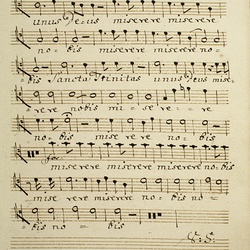 unus Deus miserere miserere
nobis miserere miserere no-
bis Sancta Trinitas unus Deus mise-
rere nobis miserere
nobis miserere no-
bis miserere miserere mise-
re miserere nobis no-
bis
V: S: